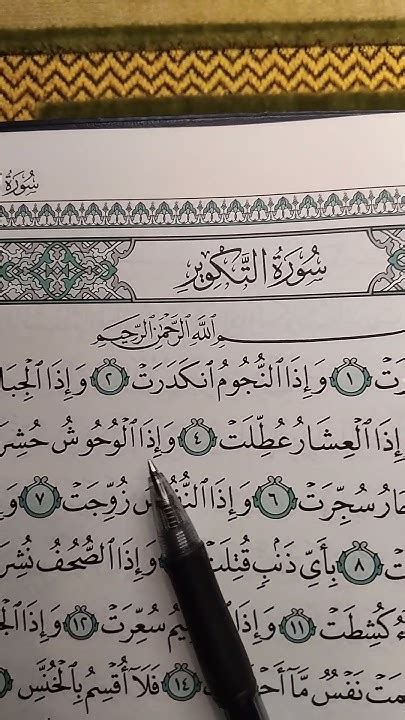 سُورَةُ
سُورَةُ التَّكْوِيرِ
ٱللَّهِ ٱلرَّحْمَٰنِ ٱلرَّحِيمِ
رَتْ ١ وَإِذَا ٱلنُّجُومُ ٱنكَدَرَتْ ٢ وَإِذَا ٱلْجِبَا
إِذَا ٱلْعِشَارُ عُطِّلَتْ ٤ وَإِذَا ٱلْوُحُوشُ حُشِرَ
حَارُ سُجِّرَتْ ٦ وَإِذَا زُوِّجَتْ ٧ وَإِ
تْ ٨ بِأَيِّ ذَنۢبٍ قُتِلَتْ وَإِذَا ٱلصُّحُفُ نُشِرَ
ءُ كُشِطَتْ ١١ وَإِذَا سُعِّرَتْ ١٢ وَإِذَا ٱلْجَ
مَتْ نَفْسٌ مَّآ ١٤ فَلَآ أُقْسِمُ بِٱلْخُنَّسِ